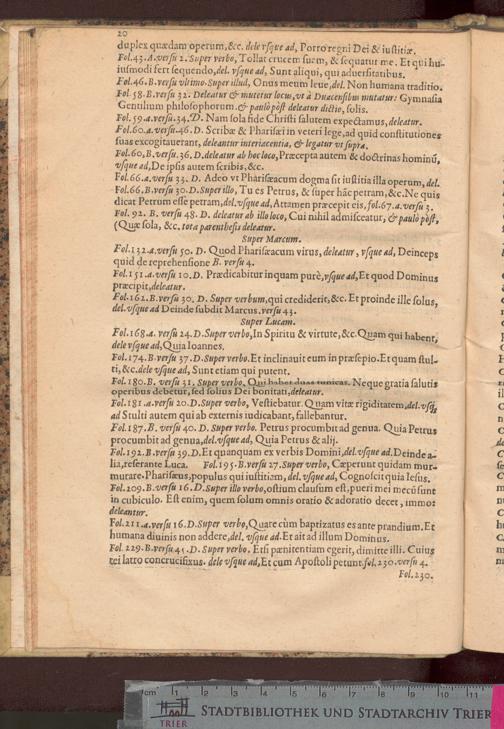 20
duplex quædam operum,&c. dele vsque ad, Porro regni Dei & iustitiæ.
Fol.43.A.versu 2. Super verbo, Tollat crucem suam, & sequatur me. Et qui hu-
iusmodi fert sequendo,del. vsque ad, Sunt aliqui, qui aduersitatibus.
Fol.46.B.versu vltimo. Super illud, Onus meum leue,del. Non humana traditio.
Fol.58.B.versu 32. Deleatur & mutetur locus,vt à Duacensibus mutatur: Gymnasia
Gentilium philosophorum.& paulò pòst deleatur dictio, solis.
Fol.59.a.versu 34.D. Nam sola fide Christi salutem expectamus, deleatur.
Fol.60.a.versu.46.D. Scribæ & Pharisæi in veteri lege,ad quid constitutiones
suas excogitauerant, deleantur interiacentia, & legatur vt supra.
Fol.60,B.versu 36.D.deleatur ab hoc loco,Præcepta autem & doctrinas hominũ,
vsque ad, De ipsis autem scribis,&c.
Fol.66.a.versu 33. D. Adeo vt Pharisæacum dogma sit iustitia illa operum, del.
Fol.66.B.versu 30.D.Super illo, Tu es Petrus, & super hãc petram,&c.Ne quis
dicat Petrum esse petram,del.vsque ad,Attamen præcepit eis, fol.67.a.versu 3.
Fol.92. B. versu 48. D. deleatur ab illo loco, Cui nihil admisceatur, & paulò pòst,
(Quæ sola, &c. tota parenthesis deleatur.
Super Marcum.
Fol.132.a.versu 50. D. Quod Pharisæacum virus, deleatur, vsque ad, Deinceps
quid de reprehensione B. versu 4.
Fol.151.a.versu 10.D. Prædicabitur inquam purè,vsque ad,Et quod Dominus
præcipit,deleatur.
Fol.162.B.versu 30. D. Super verbum,qui crediderit,&c. Et proinde ille solus,
del.vsque ad Deinde subdit Marcus.versu 43.
Super Lucam.
Fol.168.a. versu 24.D.Super verbo,In Spiritu & virtute, &c.Quam qui habent,
dele vsque ad,Quia Ioannes.
Fol.174.B.versu 37.D.Super verbo.Et inclinauit eum in præsepio.Et quam stul-
ti,&c.dele vsque ad,Sunt etiam qui putent.
Fol.180.B. versu 31. Super verbo, Qui habet duas tunicas. Neque gratia salutis
operibus debetur, sed solius Dei bonitati,deleatur.
Fol.181.a.versu 20.D.Super verbo, Vestiebatur. Quam vitæ rigiditatem,del.vsq;
ad Stulti autem qui ab externis iudicabant, fallebantur.
Fol.187.B. versu 40. D. Super verbo. Petrus procumbit ad genua. Quia Petrus
procumbit ad genua,del.vsque ad, Quia Petrus & alij.
Fol.192.B.versu 39.D.Et quanquam ex verbis Domini,del.vsque ad.Deinde a-
lia,referante Luca. Fol.195.B.versu 27.Super verbo, Cæperunt quidam mur-
murare.Pharisæus,populus qui iustitiam, del.vsque ad, Cognoscit quia Iesus.
Fol.209.B.versu 16.D.Super illo verbo,ostium clausum est,pueri mei mecũ sunt
in cubiculo. Est enim, quem solum omnis oratio & adoratio decet, immo
deleantur.
Fol.211.a.versu 16.D.Super verbo,Quare cùm baptizatus es ante prandium.Et
humana diuinis non addere,del. vsque ad.Et ait ad illum Dominus.
Fol.229.B.versu 41.D.Super verbo. Etsi pœnitentiam egerit, dimitte illi. Cuius
rei latro concrucifixus. dele vsque ad,Et cum Apostoli petunt.fol.230.versu 4.
Fol.230.
cm 1 2 3 4 5 6 7 8 9 10 11
TRIER
STADTBIBLIOTHEK UND STADTARCHIV TRIER